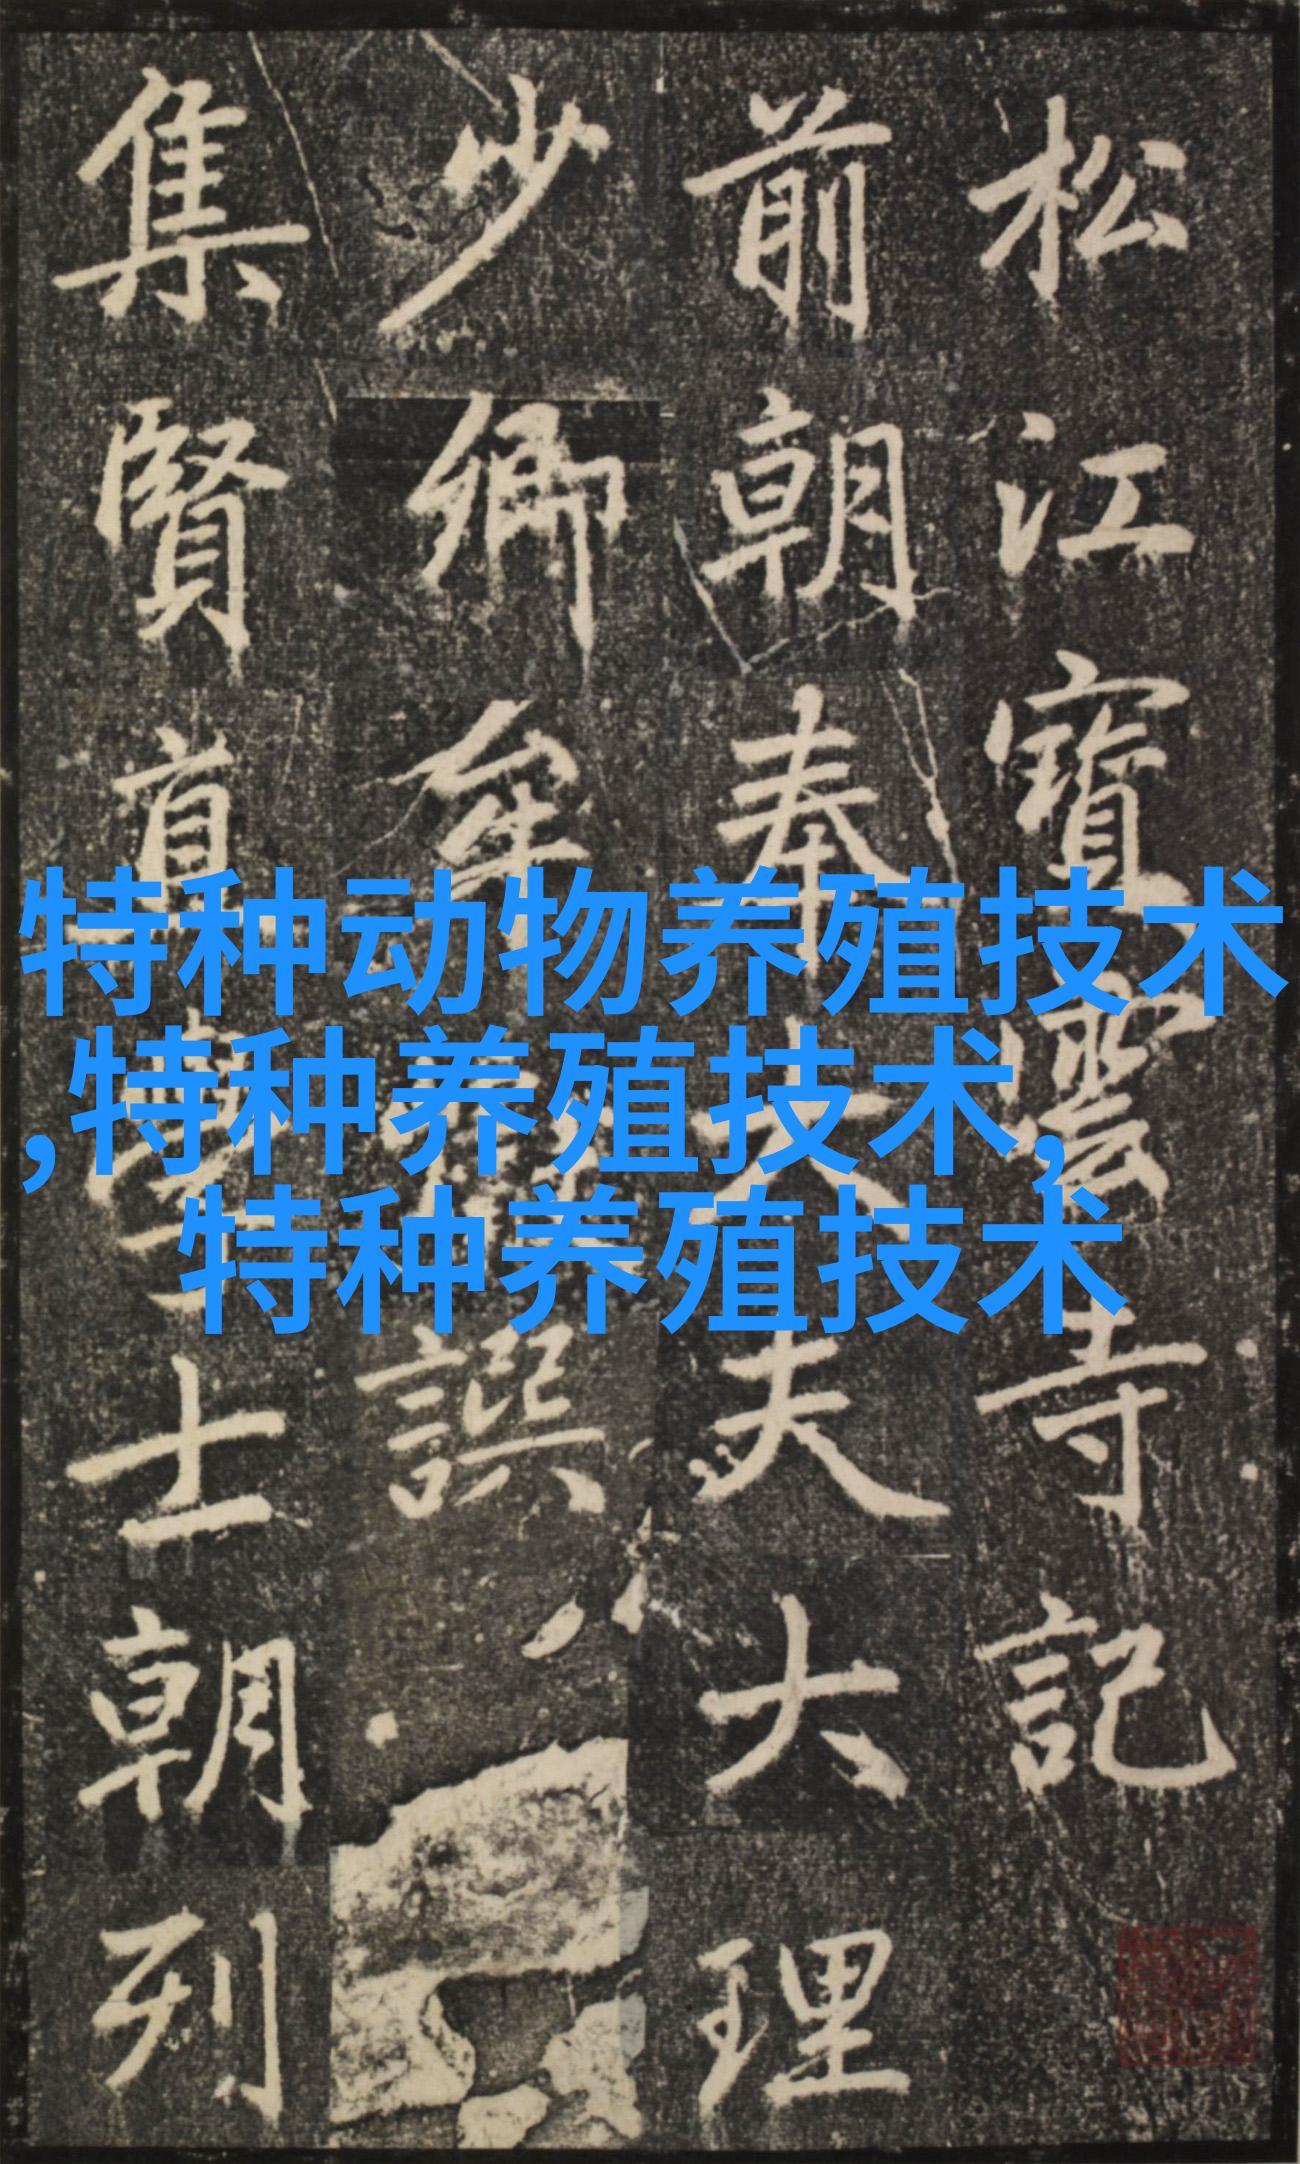 松江寶雲寺記
前朝奉大夫大理
少卿牟
譔
集賢直學士朝列
特种动物养殖技术
,特种养殖技术,
特种养殖技术